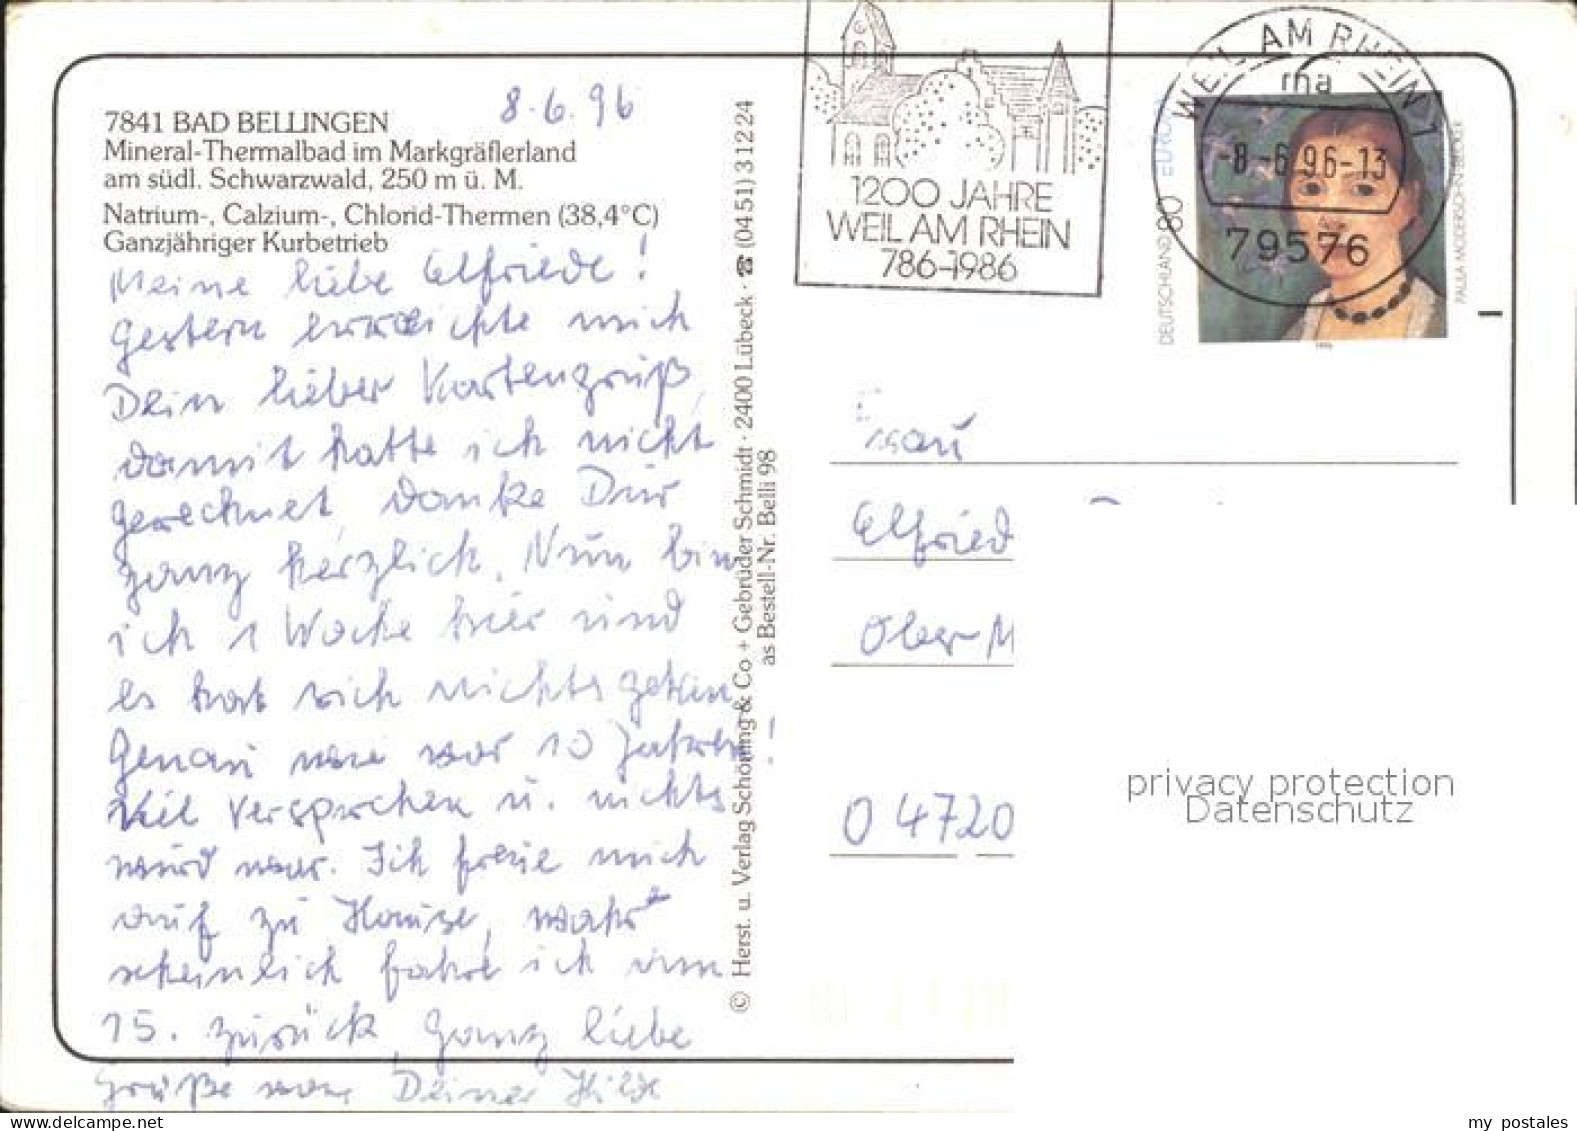 8.6.96
7841 BAD BELLINGEN
Mineral-Thermalbad im Markgräflerland
am südl. Schwarzwald, 250 m ü. M.
Natrium-, Calzium-, Chlorid-Thermen (38,4°C)
Ganzjähriger Kurbetrieb
Meine liebe Elfriede!
Gestern erreichte mich
Dein lieber Kartengruß,
damit hatte ich nicht
gerechnet, danke Dir
ganz herzlich. Nun bin
ich 1 Woche hier und
es hat sich nichts getan.
Genau wie vor 10 Jahren!
Viel versprochen u. nichts
wird war. Ich freue mich
auf zu Hause, wahr-
scheinlich fahre ich am
15. zurück, ganz liebe
Grüße von Deiner Hilde
© Herst. u. Verlag Schöning & Co + Gebrüder Schmidt · 2400 Lübeck · ☎ (04 51) 3 12 24
as Bestell-Nr. Belli 98
1200 JAHRE
WEIL AM RHEIN
786-1986
WEIL AM RHEIN 1
rha
-8.-6.96-13
79576
DEUTSCHLAND 80 EUROPA
PAULA MODERSOHN-BECKER
1996
Frau
Elfried
Ober-M
O 4720
privacy protection
Datenschutz
my postales